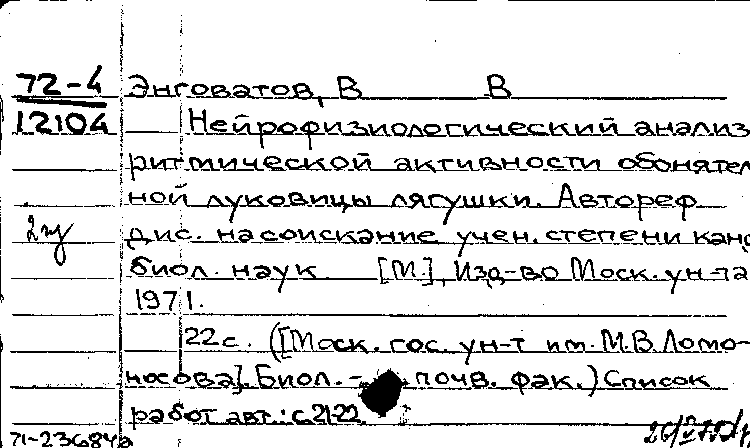 72-4 Энговатов, В В
12104 Нейрофизиологический анализ
ритмической активности обонятел
ной луковицы лягушки. Автореф
2 дис. на соискание учен. степени канд
биол. наук. [М.], Изд-во Моск. ун-та
1971.
22 с. ([Моск. гос. ун-т им. М.В. Ломо-
носова]. Биол.- почв. фак.) Список
работ авт.: с. 21-22
71-23684а